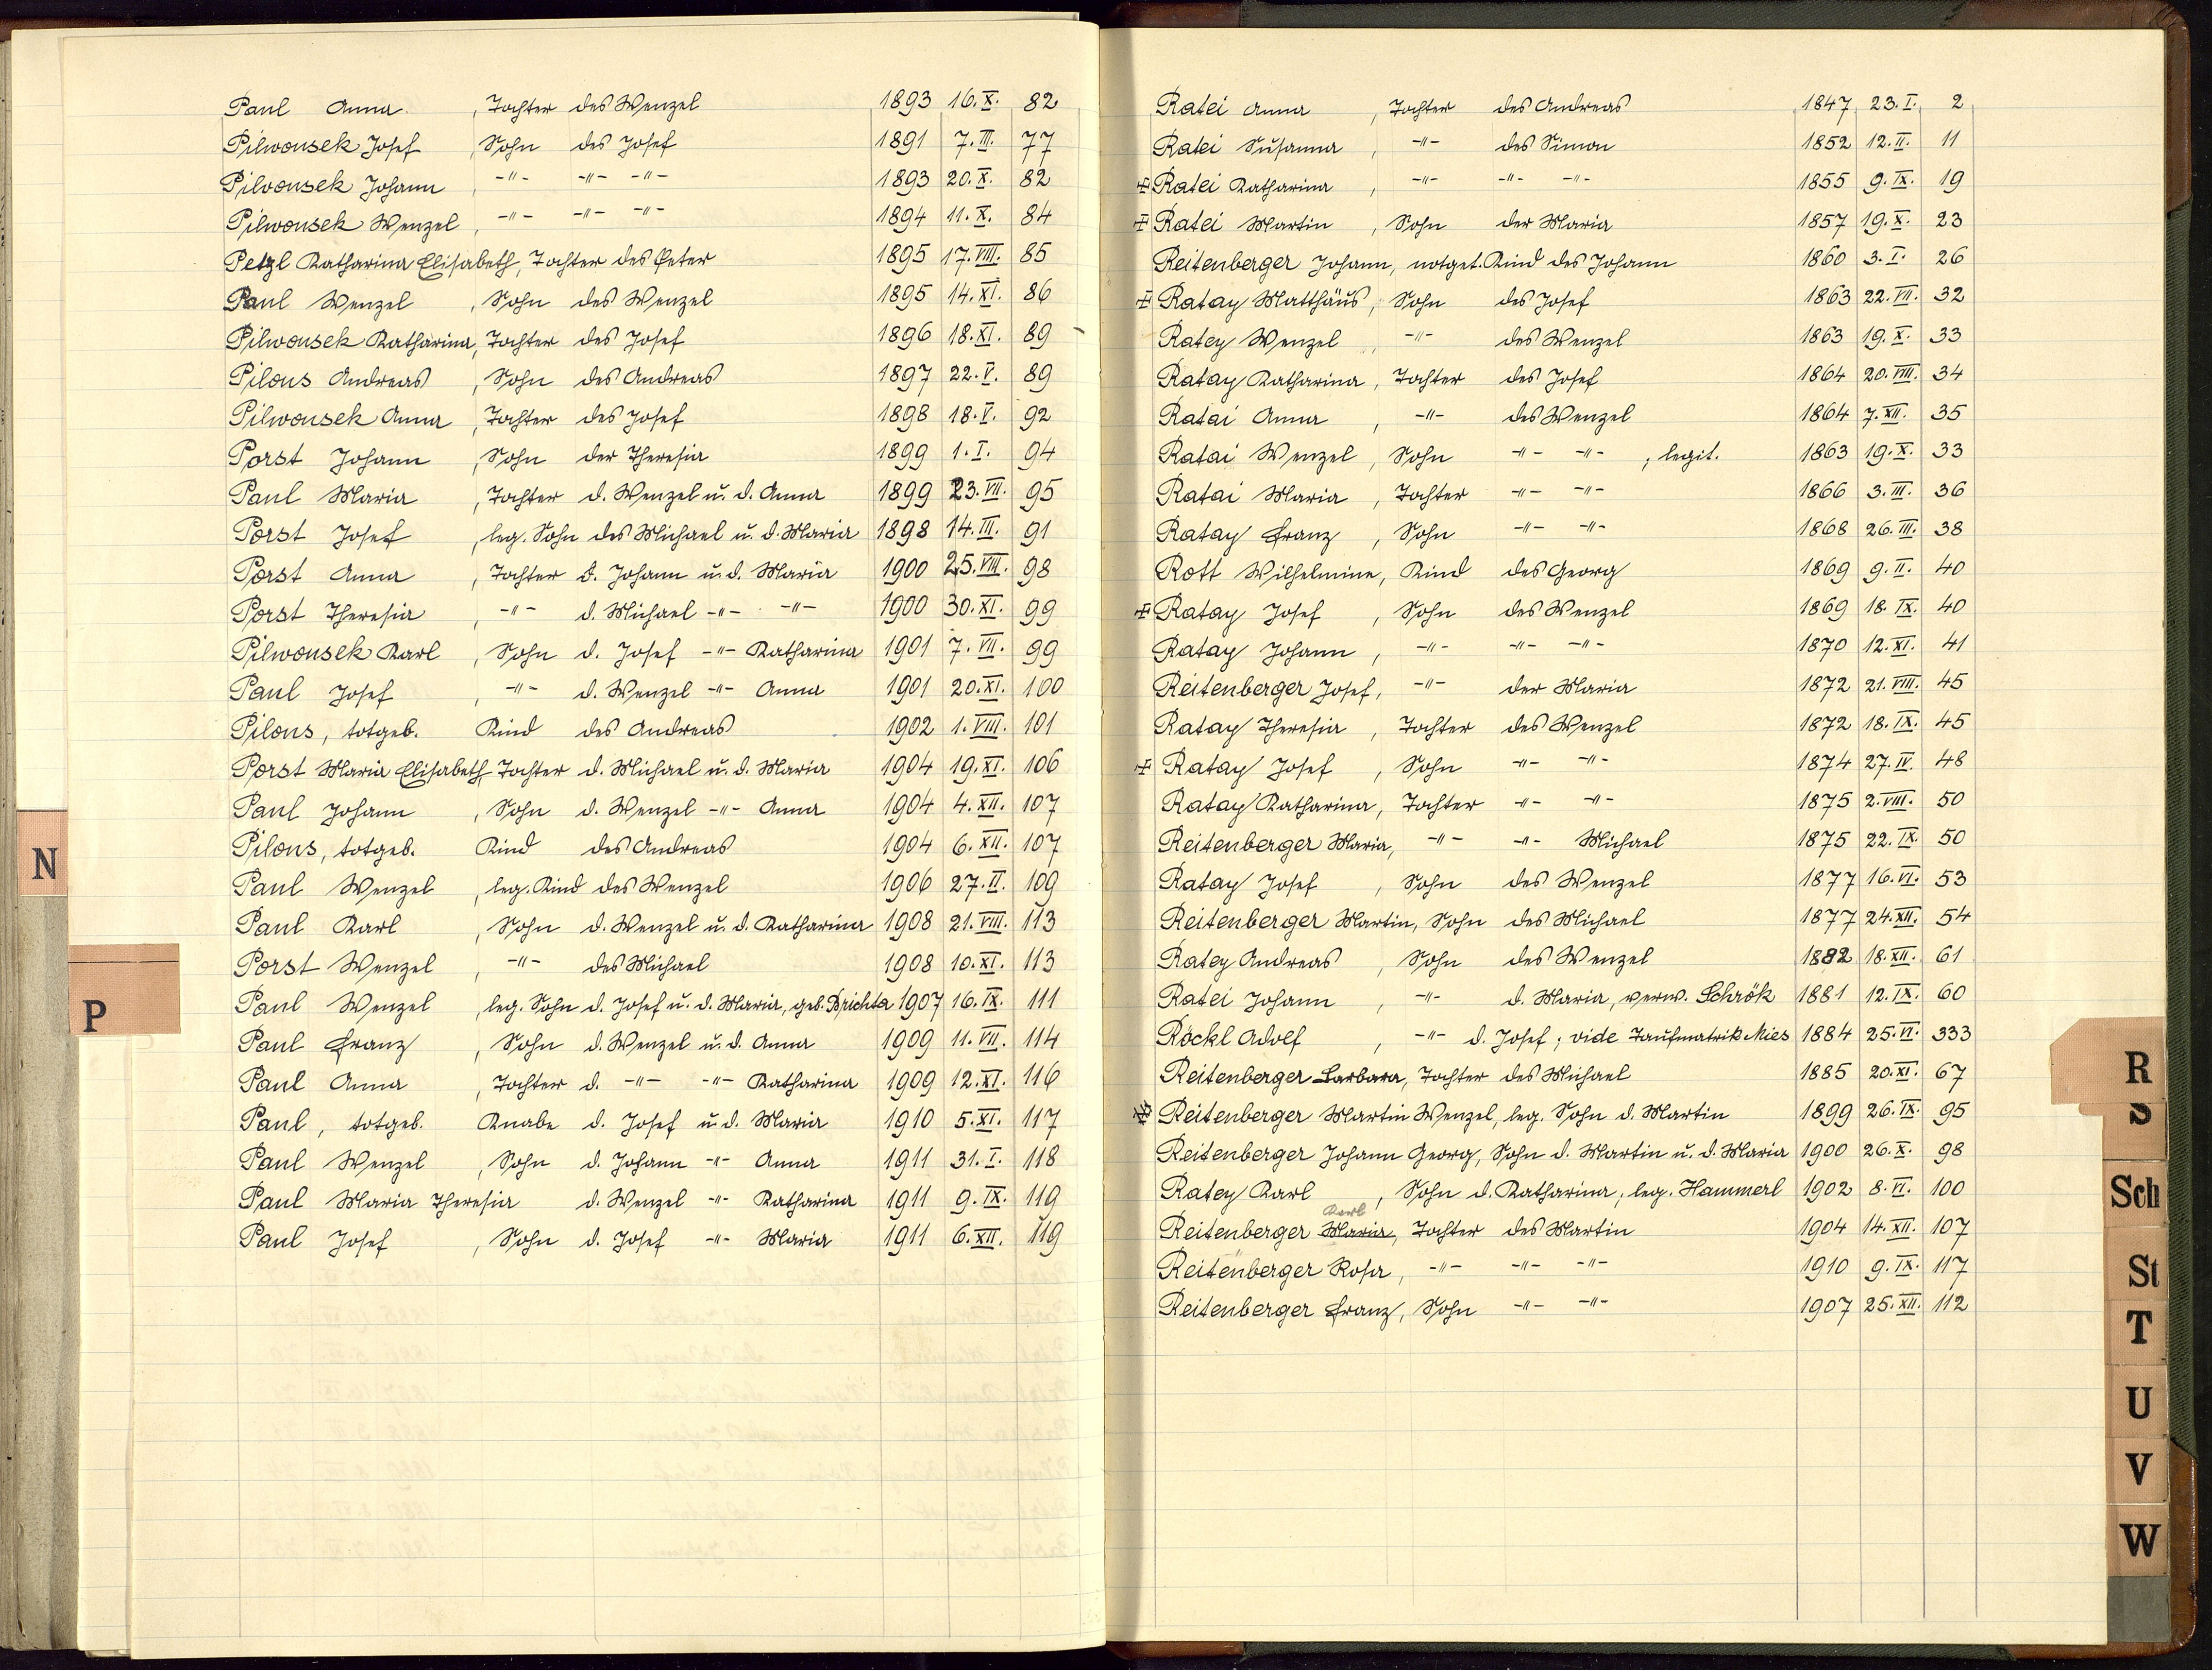 Paul Anna, Tochter des Wenzel 1893 16.X. 82
Pilwousek Josef, Sohn des Josef 1891 7.III. 77
Pilvousek Johann, -"- -"- -"- 1893 20.X. 82
Pilwousek Wenzel, -"- -"- -"- 1894 11.X. 84
Petzl Katharina Elisabeth, Tochter des Peter 1895 17.VIII. 85
Paul Wenzel, Sohn des Wenzel 1895 14.XI. 86
Pilwousek Katharina, Tochter des Josef 1896 18.XI. 89
Pilous Andreas, Sohn des Andreas 1897 22.V. 89
Pilwousek Anna, Tochter des Josef 1898 18.V. 92
Porst Johann, Sohn der Theresia 1899 1.I. 94
Paul Maria, Tochter d. Wenzel u. d. Anna 1899 23.VII. 95
Porst Josef, leg. Sohn des Michael u. d. Maria 1898 14.III. 91
Porst Anna, Tochter d. Johann u. d. Maria 1900 25.VIII. 98
Porst Theresia, -"- d. Michael -"- -"- 1900 30.XI. 99
Pilwousek Karl, Sohn d. Josef -"- Katharina 1901 7.VII. 99
Paul Josef, -"- d. Wenzel -"- Anna 1901 20.XI. 100
Pilous, totgeb. Kind des Andreas 1902 1.VIII. 101
Porst Maria Elisabeth Tochter d. Michael u. d. Maria 1904 19.XI. 106
Paul Johann, Sohn d. Wenzel -"- Anna 1904 4.XII. 107
Pilous, totgeb. Kind des Andreas 1904 6.XII. 107
Paul Wenzel, leg. Kind des Wenzel 1906 27.II. 109
Paul Karl, Sohn d. Wenzel u. d. Katharina 1908 21.VIII. 113
Porst Wenzel, -"- des Michael 1908 10.XI. 113
Paul Wenzel, leg. Sohn d. Josef u. d. Maria, geb. Brichta 1907 16.IX. 111
Paul Franz, Sohn d. Wenzel u. d. Anna 1909 11.VII. 114
Paul Anna, Tochter d. -"- -"- Katharina 1909 12.XI. 116
Paul, totgeb. Knabe d. Josef u. d. Maria 1910 5.XI. 117
Paul Wenzel, Sohn d. Johann -"- Anna 1911 31.I. 118
Paul Maria Theresia d. Wenzel -"- Katharina 1911 9.IX. 119
Paul Josef, Sohn d. Josef -"- Maria 1911 6.XII. 119
N
P
Ratei Anna, Tochter des Andreas 1847 23.I. 2
Ratei Susanna, -"- des Simon 1852 12.II. 11
Ratei Katharina, -"- -"- -"- 1855 9.IX. 19
Ratei Martin, Sohn der Maria 1857 19.X. 23
Reitenberger Johann, notget. Kind des Johann 1860 3.I. 26
Ratay Matthäus, Sohn des Josef 1863 22.VII. 32
Ratey Wenzel, -"- des Wenzel 1863 19.X. 33
Ratay Katharina, Tochter des Josef 1864 20.VIII. 34
Ratai Anna, -"- des Wenzel 1864 7.XII. 35
Ratai Wenzel, Sohn -"- -"- ; legit. 1863 19.X. 33
Ratai Maria, Tochter -"- -"- 1866 3.III. 36
Ratay Franz, Sohn -"- -"- 1868 26.III. 38
Rott Wilhelmine, Kind des Georg 1869 9.II. 40
Ratay Josef, Sohn des Wenzel 1869 18.IX. 40
Ratay Johann, -"- -"- -"- 1870 12.XI. 41
Reitenberger Josef, -"- der Maria 1872 21.VIII. 45
Ratay Theresia, Tochter des Wenzel 1872 18.IX. 45
Ratay Josef, Sohn -"- -"- 1874 27.IV. 48
Ratay Katharina, Tochter -"- -"- 1875 2.VIII. 50
Reitenberger Maria, -"- -"- Michael 1875 22.IX. 50
Ratay Josef, Sohn des Wenzel 1877 16.VI. 53
Reitenberger Martin, Sohn des Michael 1877 24.XII. 54
Ratey Andreas, Sohn des Wenzel 1882 18.XII. 61
Ratei Johann, -"- d. Maria, verw. Schrök 1881 12.IX. 60
Röckl Adolf, -"- d. Josef; vide Taufmatrik Mies 1884 25.VI. 333
Reitenberger Barbara, Tochter des Michael 1885 20.XI. 67
Reitenberger Martin Wenzel, leg. Sohn d. Martin 1899 26.IX. 95
Reitenberger Johann Georg, Sohn d. Martin u. d. Maria 1900 26.X. 98
Ratey Karl, Sohn d. Katharina, leg. Hammerl 1902 8.VI. 100
Karl
Reitenberger Maria, Tochter des Martin 1904 14.XII. 107
Reitenberger Rosa, -"- -"- -"- 1910 9.IX. 117
Reitenberger Franz, Sohn -"- -"- 1907 25.XII. 112
R
S
Sch
St
T
U
V
W